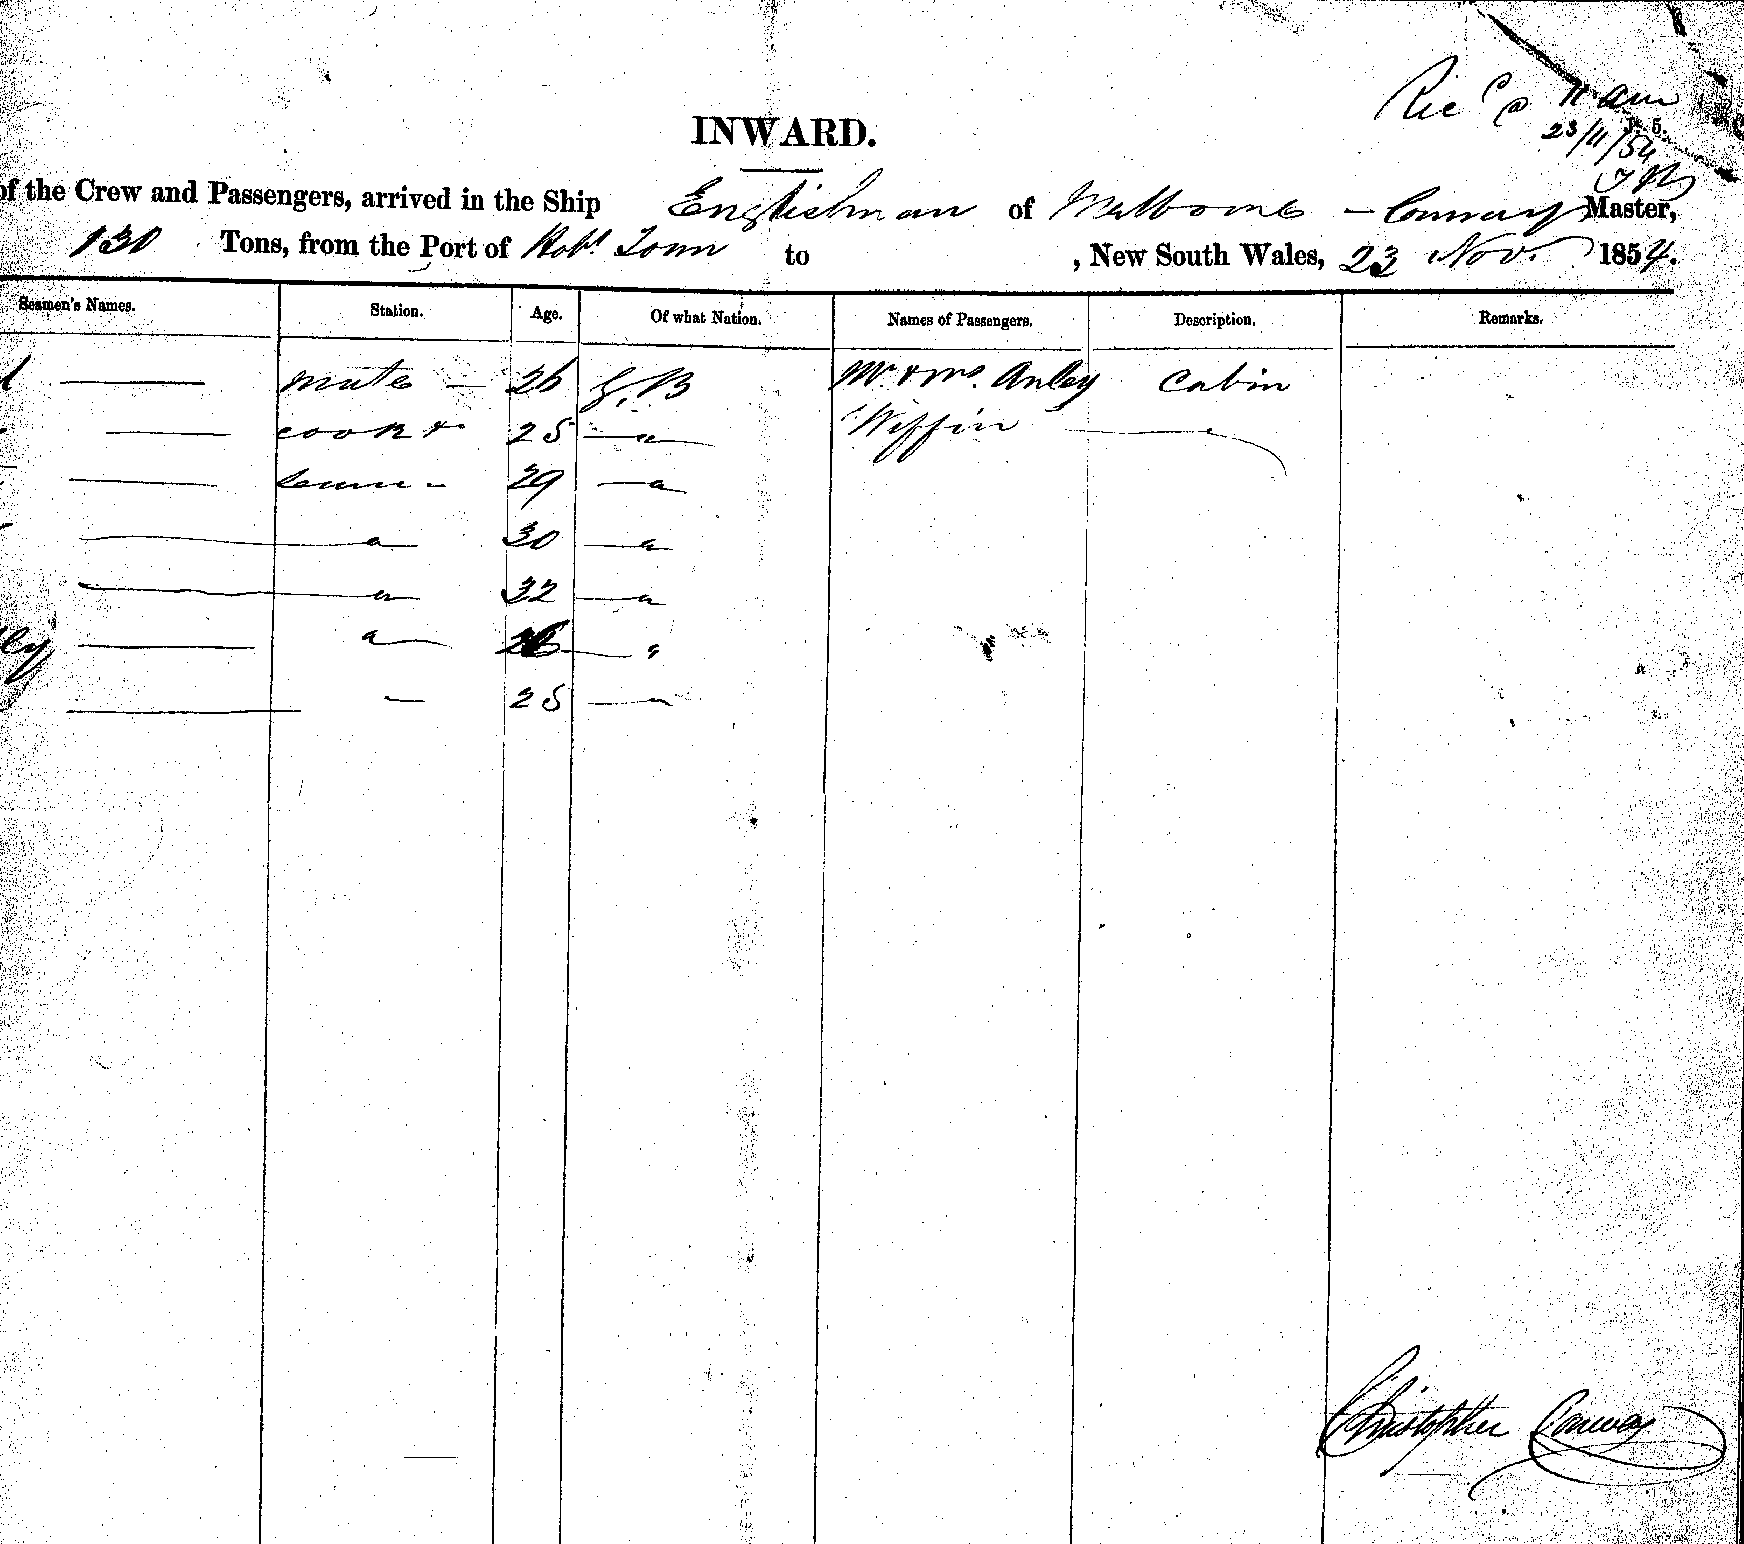 Rec^d @ 11 am
23/11/54
INWARD.
of the Crew and Passengers, arrived in the Ship Englishman of Melbourne - Conway Master,
130 Tons, from the Port of Hob^t Town to , New South Wales, 23 Nov. 1854.
Seamen's Names. Station. Age. Of what Nation. Names of Passengers. Description. Remarks.
mate 26 G.B Mr & Mrs. Anley Cabin
cook & 25 " Wiffin
29 "
" 30 "
" 32 "
ley " "
25 "
Christopher Conway